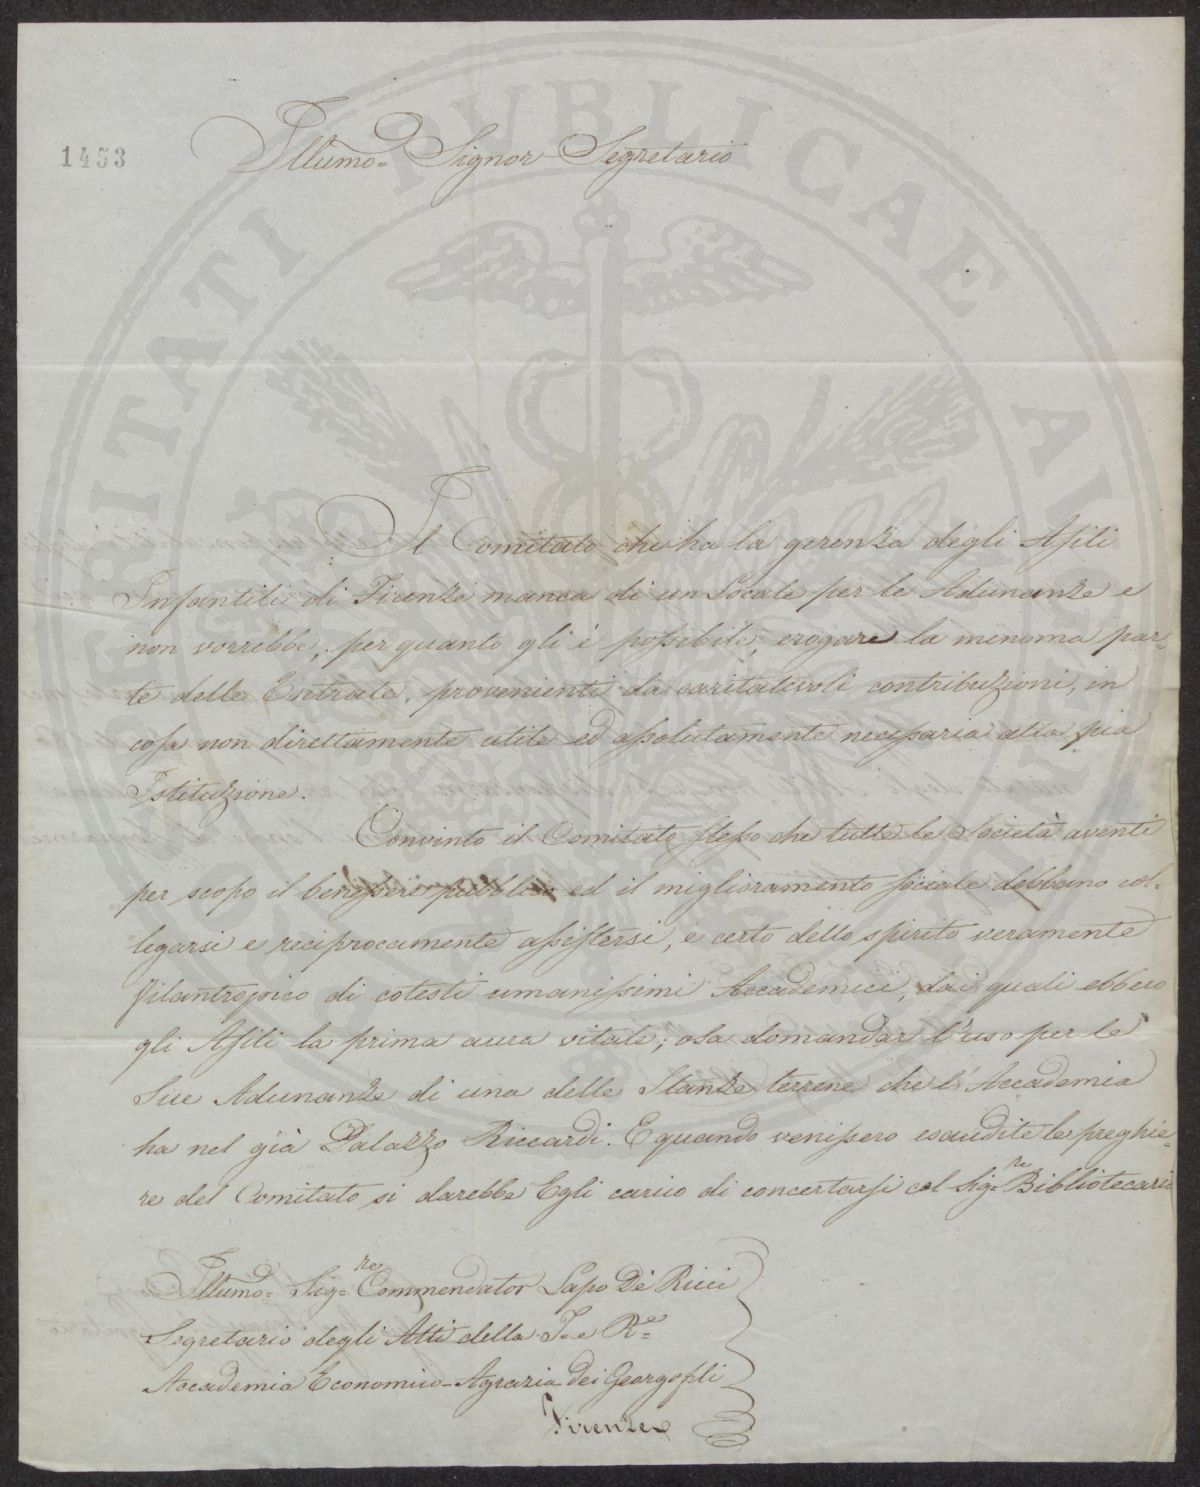 1453
Illumo= Signor Segretario
Il Comitato che ha la gerenza degli Asili
Infantili di Firenze manca di un Locale per le Adunanze e
non vorrebbe, per quanto gli è possibile, erogare la menoma par-
te delle Entrate, provenienti da caritatevoli contribuzioni, in
cosa non direttamente utile ed assolutamente necessaria alla pia
Istituzione.
Convinto il Comitato stesso che tutte le Società aventi
per scopo il benessere pubblico ed il miglioramento sociale debbano col-
legarsi e reciprocamente assistersi, e certo dello spirito veramente
filantropico di cotesti umanissimi Accademici, dai quali ebbero
gli Asili la prima aura vitale; osa domandar l'uso per le
Sue Adunanze di una delle Stanze terrene che l'Accademia
ha nel già Palazzo Riccardi. E quando venissero esaudite le preghie-
re del Comitato si darebbe Egli carico di concertarsi col Sig=re Bibliotecario
Illumo= Sig=re Commendator Lapo De Ricci
Segretario degli Atti della I. e Re=
Accademia Economico-Agraria dei Georgofili
Firenze